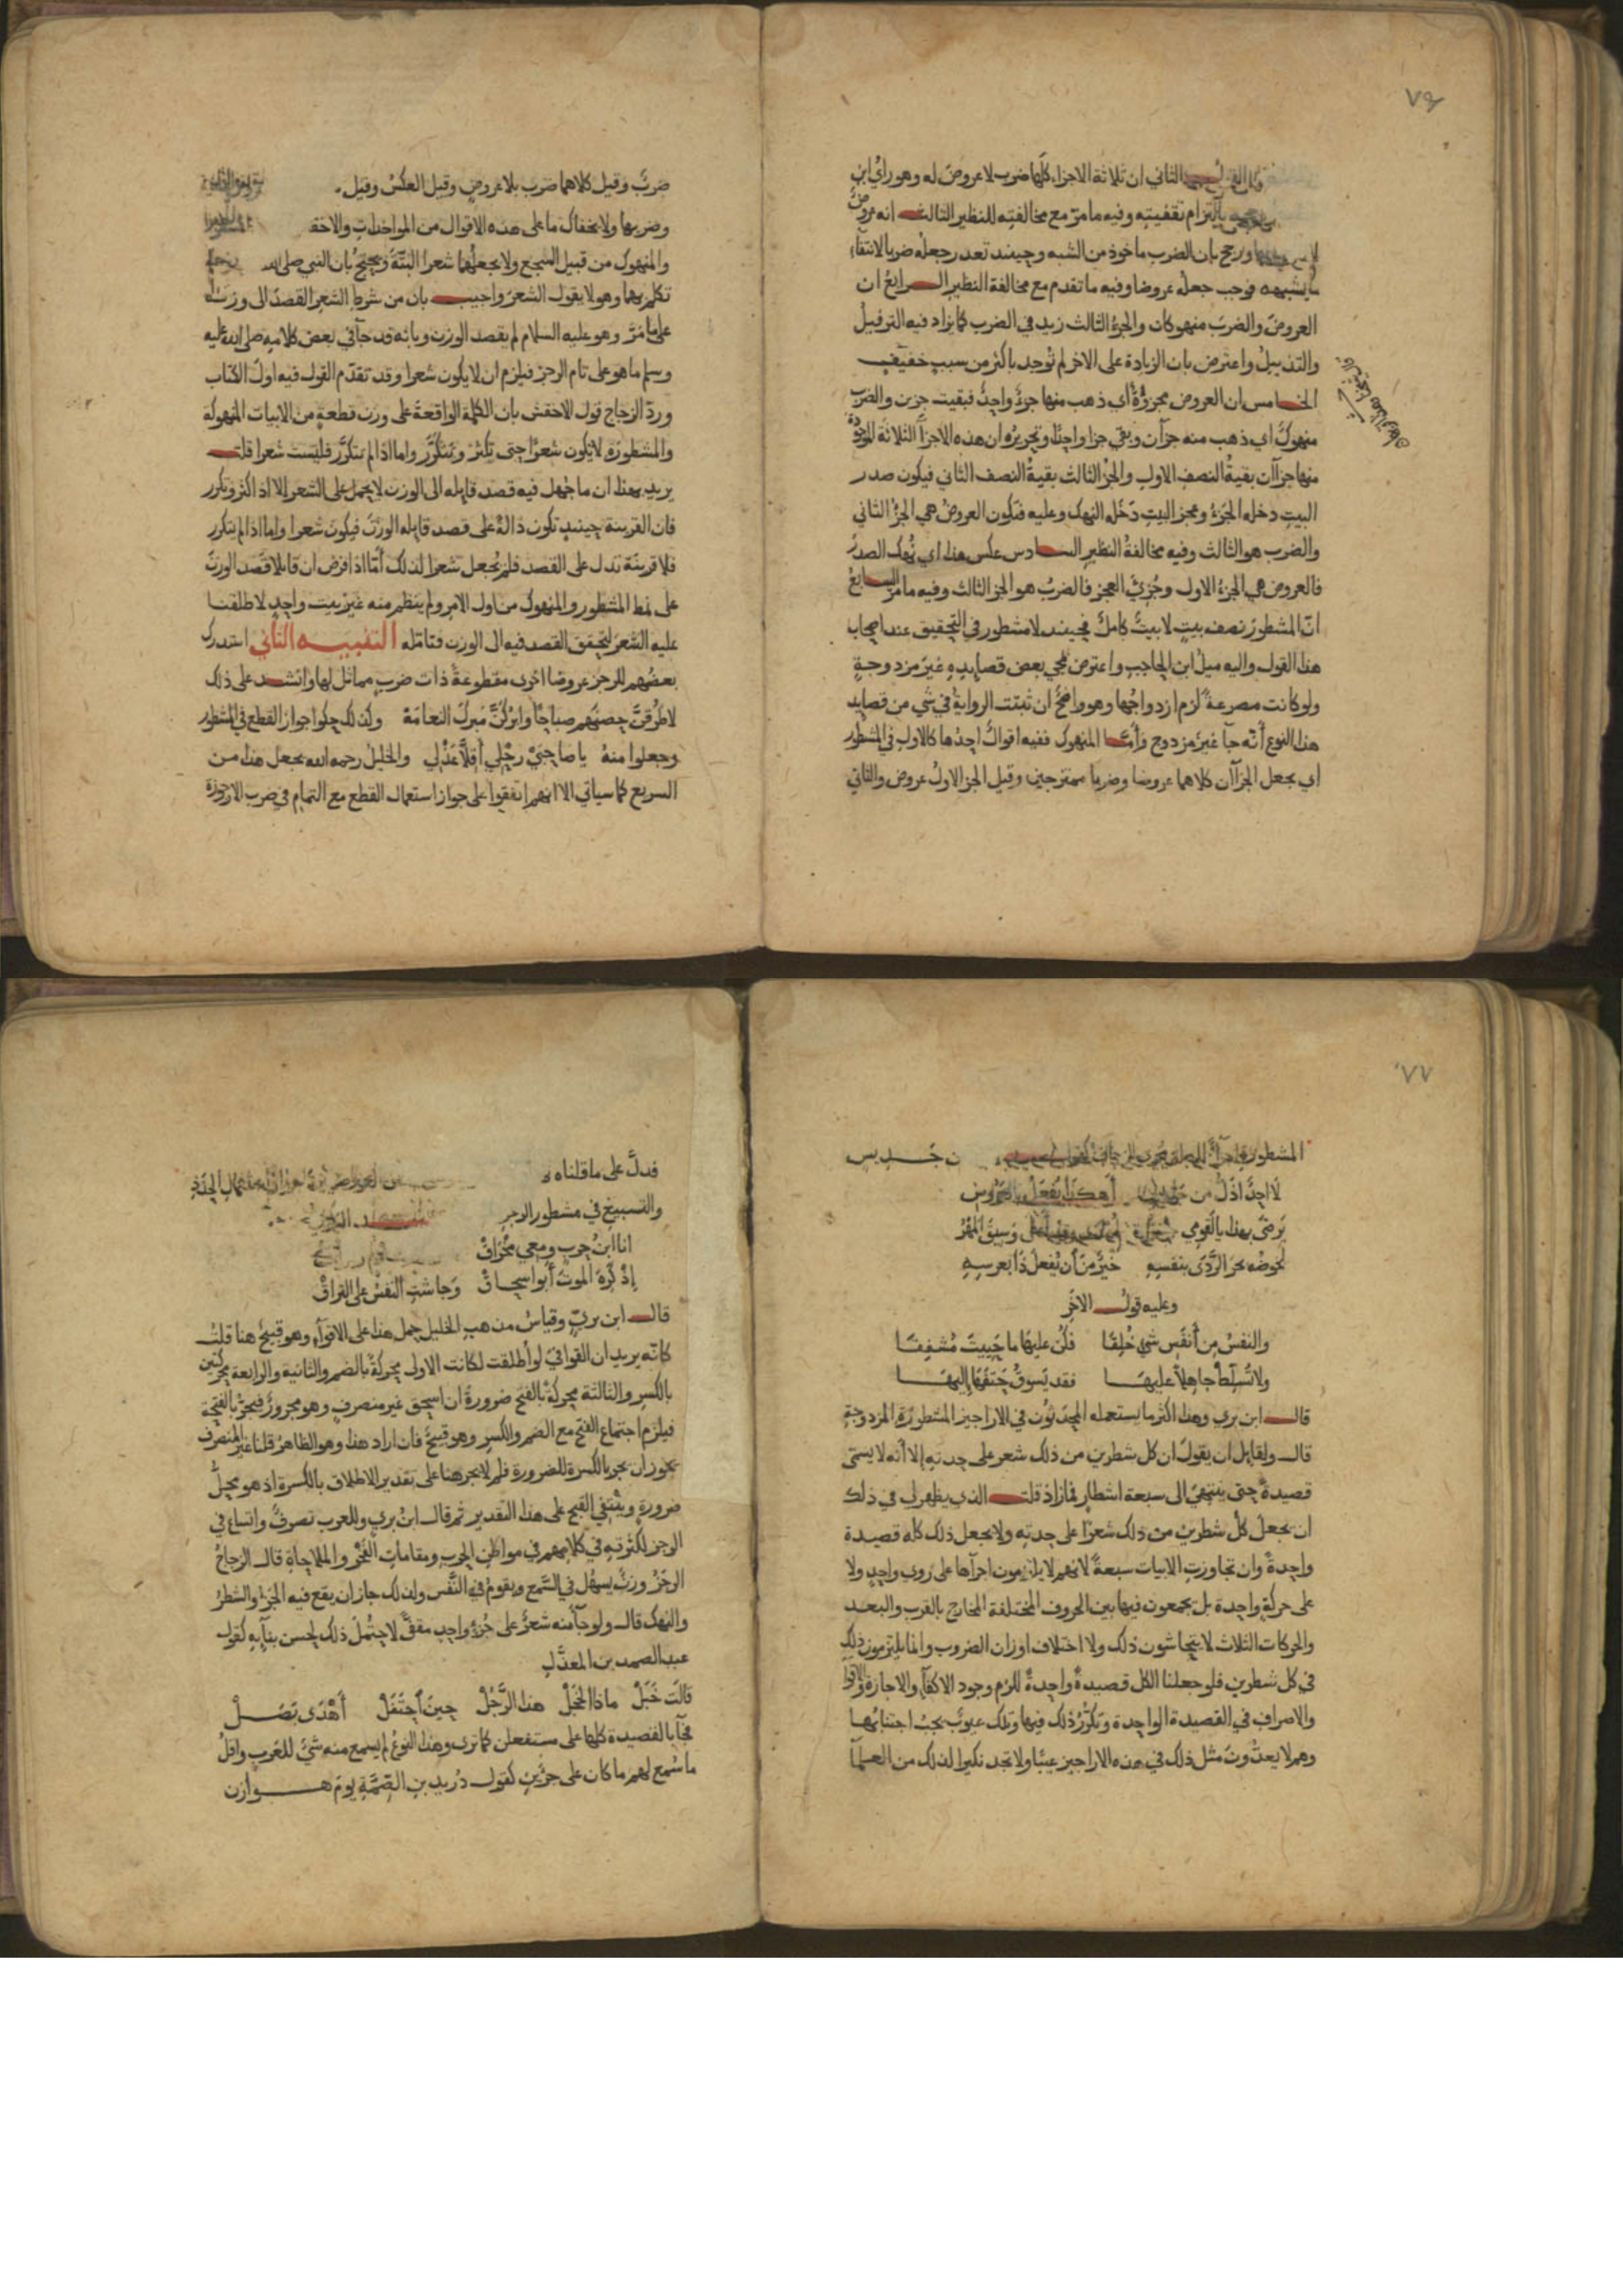 ٧٦
الثاني ان ثلاثة الاجزاء كلّها ضرب لا عروض له وهو رأي ابن
بالتزام تقفيته وفيه ما مرّ مع مخالفته للنظير الثالث انه عروض
ورجح بان الضرب ماخوذ من الشبه وحينئذ تعذر جعله ضربا لانتفاء
ما يشبهه فوجب جعله عروضا وفيه ما تقدم مع مخالفة النظير الرابع ان
العروض والضرب منهوكان والجزء الثالث زيد في الضرب كما يزاد فيه الترفيل
والتذييل واعترض بان الزيادة على الاخر لم توجد باكثر من سبب خفيف
الخامس ان العروض مجزوّة أي ذهب منها جزء واحد فبقيت جزين والضرب
منهوك اي ذهب منه جزآن وبقي جزا واحدا وتحريره ان هذه الاجزآ الثلاثة الموجودة
منها جزآن بقية النصف الاول والجز الثالث بقية النصف الثاني فيكون صدر
البيت دخله الجَزء وعجز البيت دَخَله النهك وعليه فتكون العروض هي الجزء الثاني
والضرب هو الثالث وفيه مخالفة النظير السادس عكس هذا اي نُهك الصدر
فالعروض هي الجزء الاول وجُزِئ العجز فالضرب هو الجز الثالث وفيه ما مر السابع
انّ المشطور نصف بيت لا بيت كامل فحينئذ لا مشطور في التحقيق عند اصحاب
هذا القول واليه ميل ابن الحاجب واعترض بمجي بعض قصايده غير مزدوجة
ولو كانت مصرعة لزم ازدواجها وهو واضح ان ثبتت الرواية في شي من قصايد
هذا النوع أنّه جآ غير مزدوج وأمّا المنهوك ففيه اقوال احدها كالاول في المشطور
اي يجعل الجزآن كلاهما عروضا وضربا ممتزجين وقيل الجز الاول عروض والثاني
ضربٌ وقيل كلاهما ضرب بلا عروض وقيل العكس وقيل
وضربها ولا يخفاك ما على هذه الاقوال من المواخذات والاخفش
والمنهوك من قبيل السجع ولا يجعلهما شعرا البتّة ويحتج بان النبي صلى الله
تكلم بهما وهو لا يقول الشعر واجيب بان من شرط الشعر القصد الى وزنه
على ما مَرّ وهو عليه السلام لم يقصد الوزن وبانه قد جآ في بعض كلامه صلى الله عليه
وسلم ما هو على تام الرجز فيلزم ان لا يكون شعرا وقد تقدّم القول فيه اول الكتاب
وردّ الزجاج قول الاخفش بان الكلمة الواقعة على وزن قطعة من الابيات المنهوكة
والمشطورة لا يكون شعرا حتى يكثر ويتكرّر واما اذا لم يتكرّر فليست شعرا قلت
يريد بهذا ان ما جُهل فيه قصد قايله الى الوزن لا يحمل على الشعر الا اذا كثر وتكرر
فان القرينة حينئذ تكون دالة على قصد قايله الوزن فيكون شعرا واما اذا لم يتكرر
فلا قرينة تدل على القصد فلم يُجعل شعرا لذلك أمّا اذا فرض ان قايلا قصد الوزن
على نمط المشطور والمنهوك من اول الامر ولم ينظم منه غير بيت واحد لاطلقنا
عليه الشعر لتحقق القصد فيه الى الوزن فتامّله التنبيه الثاني استدرك
بعضهم للرجز عروضا اخرى مقطوعة ذات ضرب مماثل لها وانشد على ذلك
لاطرُقنَّ حصنهم صباحًا وابركنَّ مَبرك النعامَهْ وكذلك حكوا جواز القطع في المشطور
وجعلوا منه يا صاحبَيْ رحْلي أقلاّ عَذْلي والخليل رحمه الله يجعل هذا من
السريع كما سياتي الا انهم اتفقوا على جواز استعمال القطع مع التمام في ضرب الارجوزة
٧٧
المشطورة
لا احِدٌ اذلّ من جديس أهكذا يُفعَل بالعروس
يَرضَى بهذا يا لَقومي وسيق المَهْر
لخوضُه بحرَ الرّدَى بنفسِهِ خيرٌ من أن يُفعلَ ذَا بعرسِهِ
وعليه قول الاخر
والنفسُ مِن أنفَسِ شي خُلِقَا فكُن عليها ما حَيِيتَ مُشفِقَا
ولا تُسلّط جاهلاً عليهَا فقد يَسوقُ حَتفَهَا إليهَا
قال ابن بري وهذا اكثر ما يستعمله المحدثون في الاراجيز المشطورة المزدوجة
قال ولقايل ان يقول ان كل شطرين من ذلك شعر على حدته إلا أنه لا يسمى
قصيدةً حتى ينتهي الى سبعة اشطار فما زاد قلت الذي يظهر لي في ذلك
ان يجعل كلّ شطرين من ذلك شعرًا على حدته ولا يجعل ذلك كله قصيدة
واحدة وان تجاوزت الابيات سبعة لانهم لا يلتزمون اجرآها على روي واحد ولا
على حركة واحدة بل يجمعون فيها بين الحروف المختلفة المخارج بالقرب والبعد
والحركات الثلاث لا يتحاشون ذلك ولا اختلاف اوزان الضروب وانما يلتزمون ذلك
في كل شطرين فلو جعلنا الكل قصيدة واحدة للزم وجود الاكفآ والاجازة والاقوا
والاصراف في القصيدة الواحدة وتكرّرُ ذلك فيها وتلك عيوب يجب اجتنابها
وهم لا يعدّون مثل ذلك في هذه الاراجيز عيبًا ولا تجد نكيرا لذلك من العلمآ
فدلَّ على ما قلناه
والتسبيغ في مشطور الرجز
انا ابنُ حربٍ ومعي مِخْرَاقْ
إذْ كَرِهَ الموتَ أبو اسحاقْ وجاشتِ النفسُ على التراقْ
قال ابن بري وقياس مذهب الخليل حمل هذا على الاقوآ وهو قبيح هنا قلت
كانه يريد ان القوافي لو أطلقت لكانت الاولى محركة بالضم والثانية والرابعة محركتين
بالكسر والثالثة محركة بالفتح ضرورة ان اسحق غير منصرف وهو مجرور فيجرّ بالفتحة
فيلزم اجتماع الفتح مع الضم والكسر وهو قبيح فان اراد هذا وهو الظاهر قلنا غير المنصرف
يجوز ان يجر بالكسرة للضرورة فلم لا يجر هنا على تقدير الاطلاق بالكسرة اذ هو محلّ
ضرورة وينتفي القبح على هذا التقدير ثم قال ابن بري وللعرب تصرف واتساع في
الرجز لكثرته في كلامهم في مواطن الحرب ومقامات الفخر والملاحاة قال الزجاج
الرجز وزنٌ يسهل في السَّمع ويقوم في النَّفس ولذلك جاز ان يقع فيه الجَزء والشطر
والنهك قال ولو جآ منه شعر على جُزء واحد مقفّى لاحتُمل ذلك لحسن بنآيه كقول
عبد الصمد بن المعذّل
قالَت خَبَلْ ماذا الخجَلْ هذا الرَّجُلْ حينَ احتَفَلْ أهْدَى بَصَلْ
فجآ بالقصيدة كلها على مستفعلن كما ترى وهذا النوع لم يسمع منه شيٌ للعرب واقلّ
ما سُمع لهم ما كان على جزين كقول دُريد بن الصِّمَّةِ يومَ هوازن